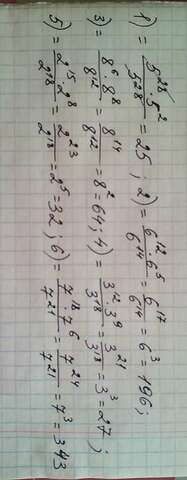 1) = 5²⁸·5²/5²⁸ = 25; 2) = 6¹²·6⁵/6¹⁴ = 6¹⁷/6¹⁴ = 6³ = 196;
3) = 8⁶·8⁸/8¹² = 8¹⁴/8¹² = 8² = 64; 4) = 3¹²·3⁹/3¹⁸ = 3²¹/3¹⁸ = 3³ = 27;
5) = 2¹⁵·2⁸/2¹⁸ = 2²³/2¹⁸ = 2⁵ = 32; 6) = 7¹⁸·7⁶/7²¹ = 7²⁴/7²¹ = 7³ = 343